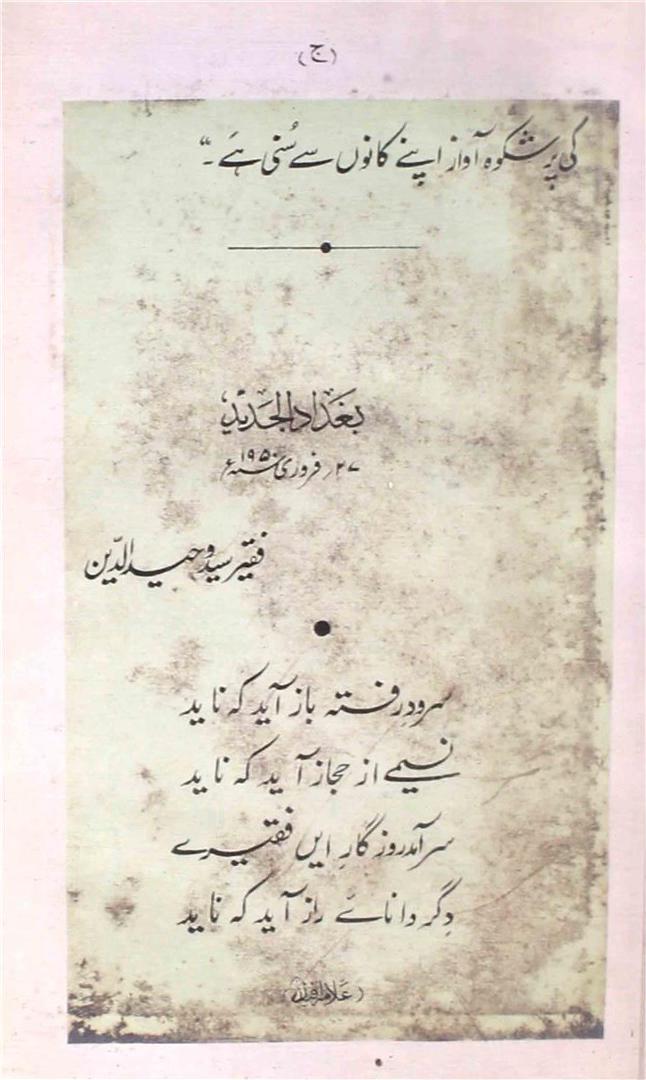 (ج)
کی پُرشکوہ آواز اپنے کانوں سے سُنی ہے۔"
بغداد الجدید
۲۷؍ فروری ۱۹۵۰ء
فقیر سید وحید الدّین
سرودِ رفتہ باز آید کہ ناید
نسیمے از حجاز آید کہ ناید
سرآمد روزگارِ ایں فقیرے
دِگر دانائے راز آید کہ ناید
(علامہ اقبال)